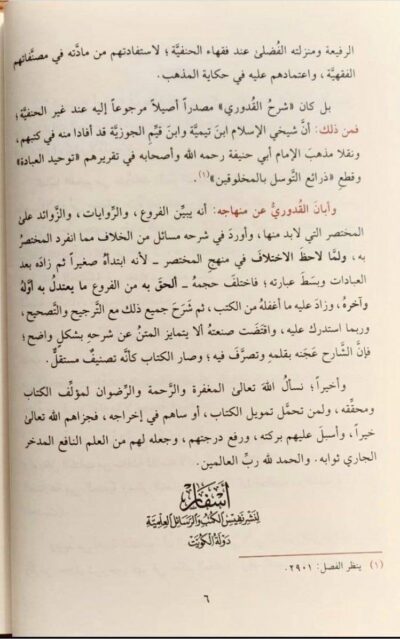 الرفيعة ومنزلته الفُضلى عند فقهاء الحنفيَّة؛ لاستفادتهم من مادَّته في مصنَّفاتهم
الفقهيَّة، واعتمادهم عليه في حكاية المذهب.
بل كان «شرحُ القُدوري» مصدراً أصيلاً مرجوعاً إليه عند غير الحنفيَّة؛
فمن ذلك: أنَّ شيخي الإسلام ابنَ تيميَّة وابنَ قيِّم الجوزيَّة قد أفادا منه في كتبهم،
ونقلا مذهبَ الإمام أبي حنيفة رحمه الله وأصحابه في تقريرهم «توحيد العبادة»
وقطعِ «ذرائع التَّوسل بالمخلوقين»(١).
وأبانَ القُدوريُّ عن منهاجه: أنه يبيِّن الفروع، والرِّوايات، والزَّوائد على
المختصر التي لابد منها، وأوردَ في شرحه مسائل من الخلاف مما انفرد المختصرُ
به، ولمَّا لاحظَ الاختلافَ في منهج المختصر - لأنه ابتدأهُ صغيراً ثم زادَه بعد
العبادات وبسَطَ عبارته؛ فاختلفَ حجمهُ - ألحقَ به من الفروع ما يعتدلُ به أوَّلهُ
وآخرهُ، وزادَ عليه ما أغفلهُ من الكتب، ثم شرَحَ جميع ذلك مع التَّرجيح والتَّصحيح،
وربما استدرك عليه، واقتَضَت صنعتهُ ألا يتمايز المتنُ عن شرحِه بشكلٍ واضح؛
فإنَّ الشَّارح عَجَنه بقلمِهِ وتصرَّف فيه؛ وصار الكتاب كأنَّه تصنيفٌ مستقلٌّ.
وأخيراً؛ نسألُ اللهَ تعالى المغفرة والرَّحمة والرِّضوان لمؤلِّف الكتاب
ومحقِّقه، ولمن تحمَّل تمويل الكتاب، أو ساهم في إخراجه، فجزاهم الله تعالى
خيراً، وأسبَلَ عليهم بركته، ورفع درجتهم، وجعله لهم من العلم النافع المدخر
الجاري ثوابه. والحمد لله ربِّ العالمين.
أسفار
لنشر نفيس الكتب والرسائل العلمية
دولة الكويت
(١) ينظر الفصل: ٢٩٠١.
٦